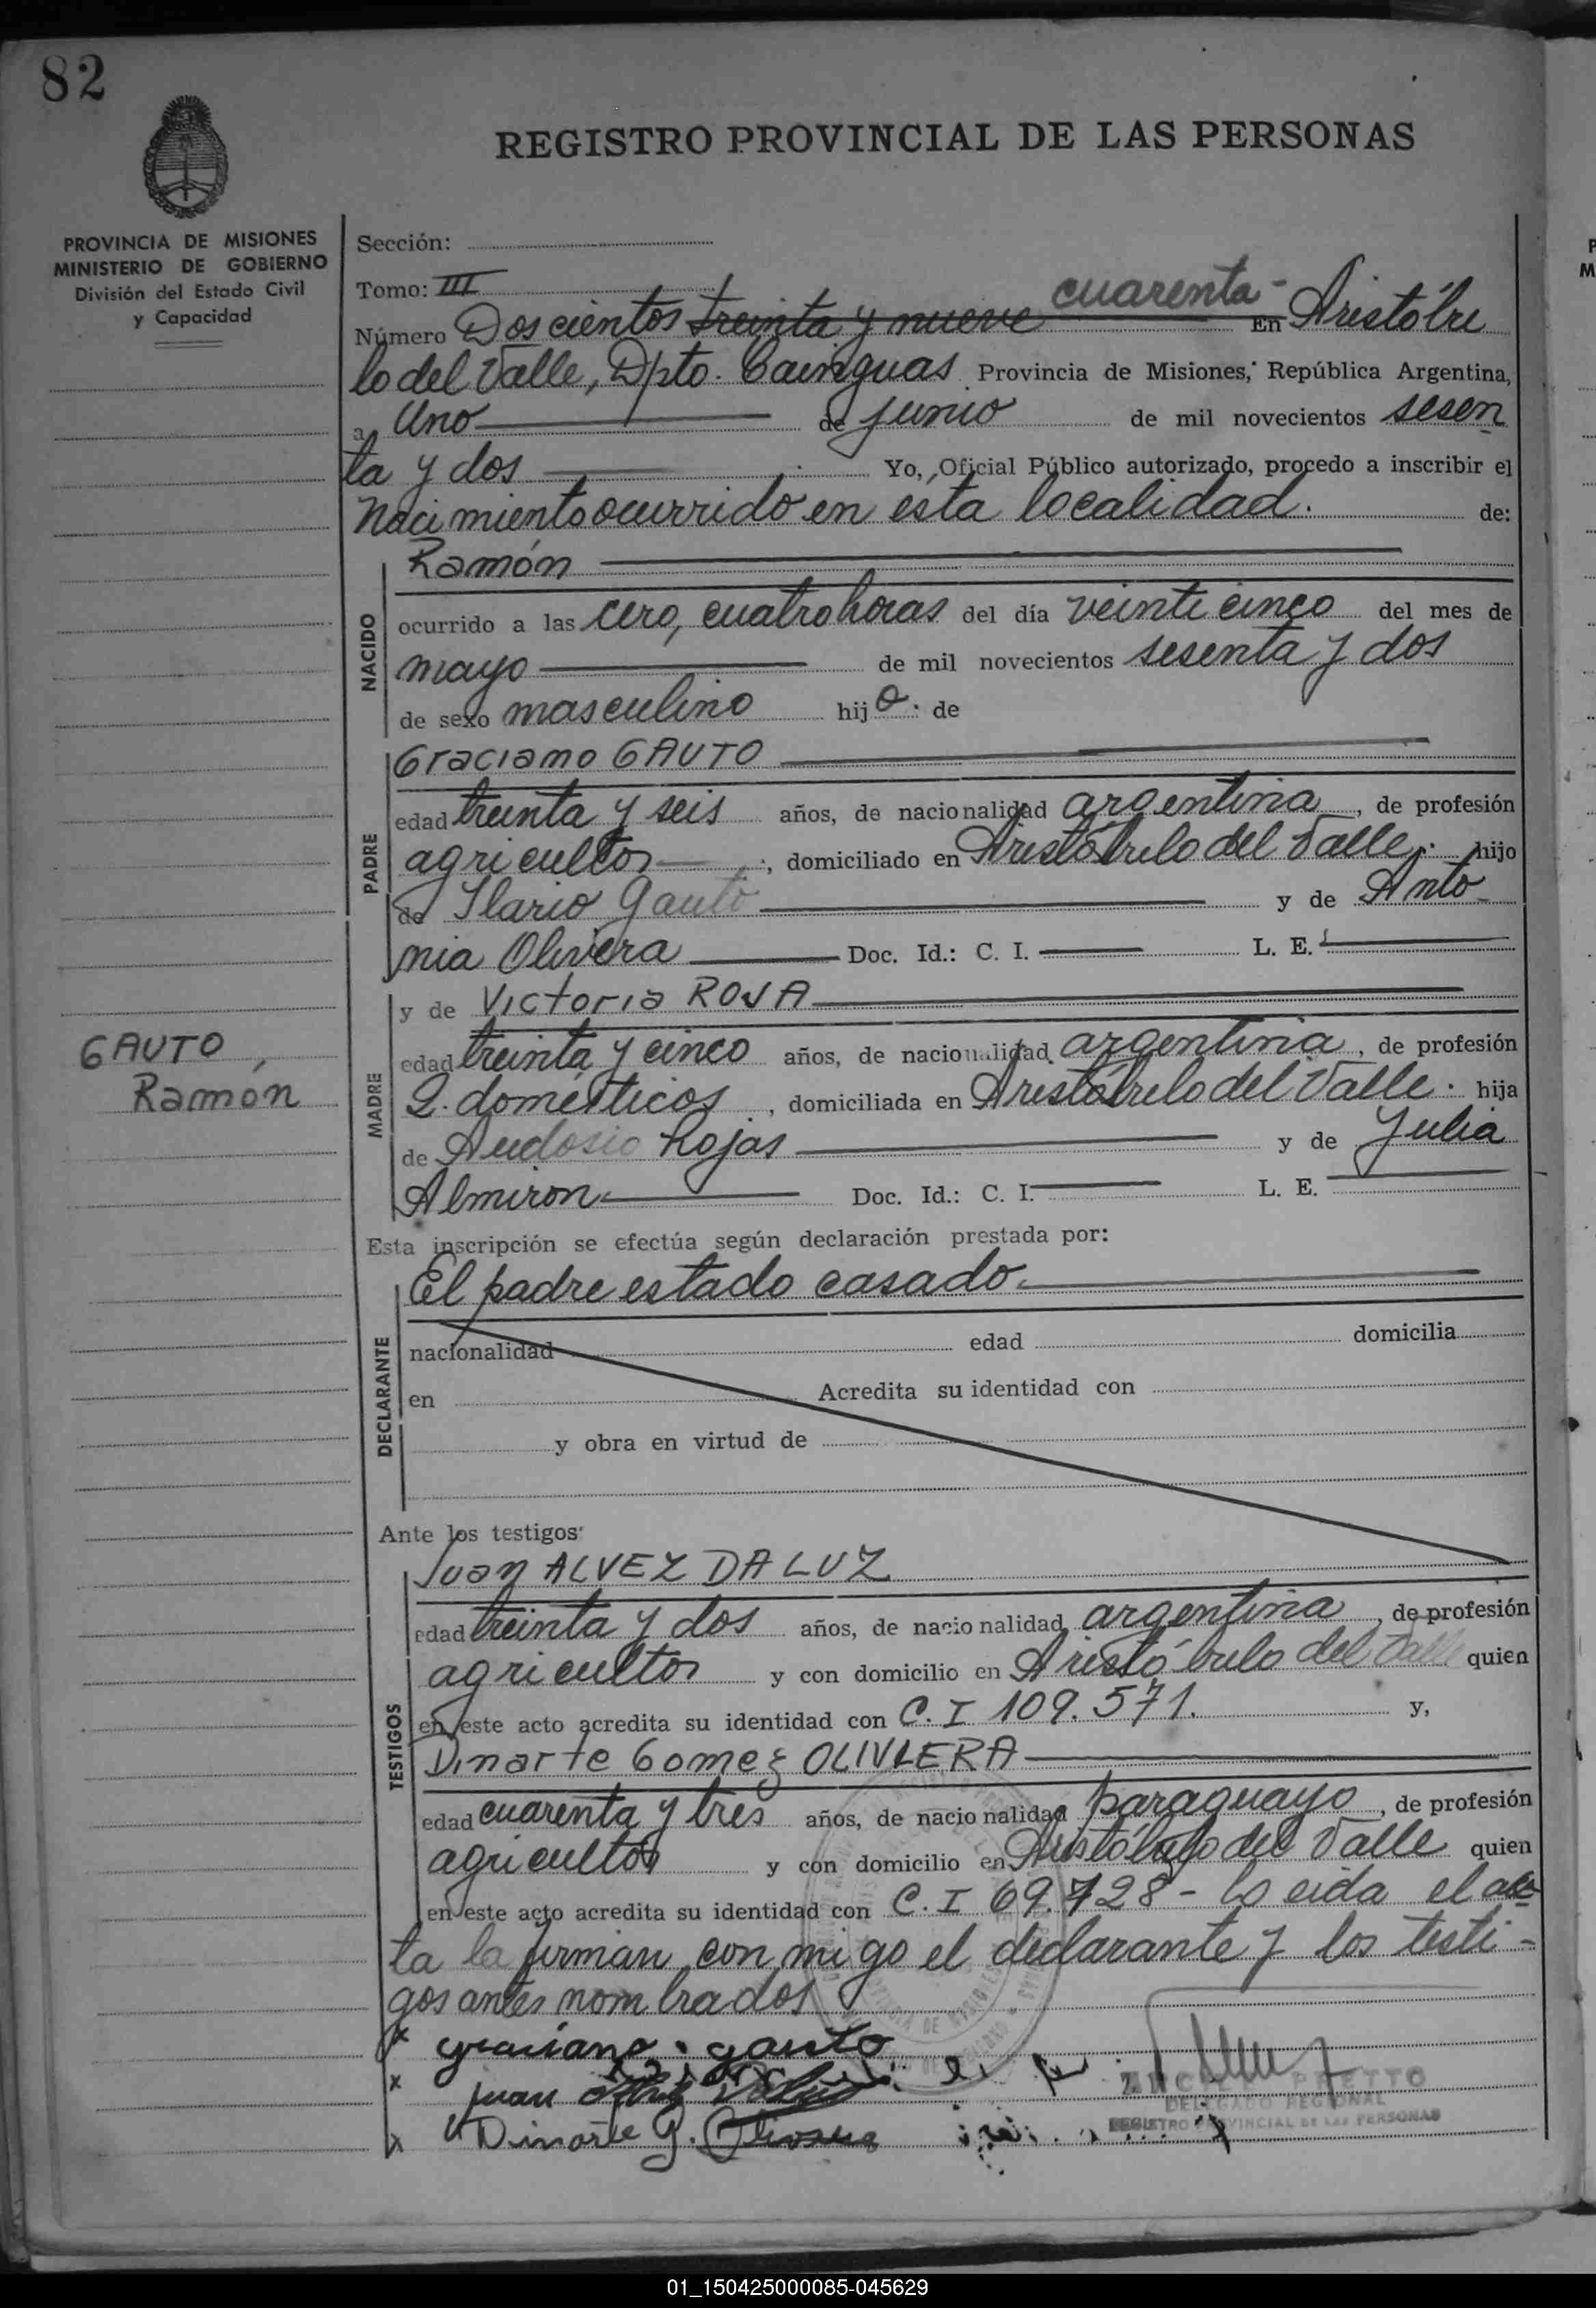 82
REGISTRO PROVINCIAL DE LAS PERSONAS
PROVINCIA DE MISIONES
MINISTERIO DE GOBIERNO
División del Estado Civil
y Capacidad
Sección:
Tomo: III
cuarenta-
Número Doscientos treinta y nueve En Aristóbu
lo del Valle, Dpto. Cainguas Provincia de Misiones, República Argentina,
a Uno de junio de mil novecientos sesen
ta y dos Yo, Oficial Público autorizado, procedo a inscribir el
Nacimiento ocurrido en esta localidad. de:
NACIDO
Ramón
ocurrido a las cero, cuatro horas del día veinticinco del mes de
mayo de mil novecientos sesenta y dos
de sexo masculino hijo de
PADRE
Graciamo GAUTO
edad treinta y seis años, de nacionalidad argentina, de profesión
agricultor, domiciliado en Aristóbulo del Valle. hijo
de Ilario Gauto y de Anto
nia Olivera Doc. Id.: C. I. L. E.
MADRE
y de Victoria ROJA
edad treinta y cinco años, de nacionalidad argentina, de profesión
Q. domésticos, domiciliada en Aristóbulo del Valle. hija
de Rojas y de Julia
Almiron Doc. Id.: C. I. L. E.
GAUTO,
Ramón
Esta inscripción se efectúa según declaración prestada por:
DECLARANTE
El padre estado casado.
nacionalidad edad domicilia
en Acredita su identidad con
y obra en virtud de
Ante los testigos:
TESTIGOS
Juan ALVEZ DA LUZ
edad treinta y dos años, de nacionalidad argentina, de profesión
agricultor y con domicilio en Aristóbulo del Valle quien
en este acto acredita su identidad con C. I 109.571. y,
Dinarte Gomez OLIVIERA
edad cuarenta y tres años, de nacionalidad paraguayo, de profesión
agricultor y con domicilio en Aristóbulo del Valle quien
en este acto acredita su identidad con C. I 69.728 - leida el ac
ta la firman conmigo el declarante y los testi-
gos antes nombrados
x graciano gauto
x juan
x Dinarte G. Olivera
PRETTO
DELEGADO REGIONAL
REGISTRO PROVINCIAL DE LAS PERSONAS
01_150425000085-045629